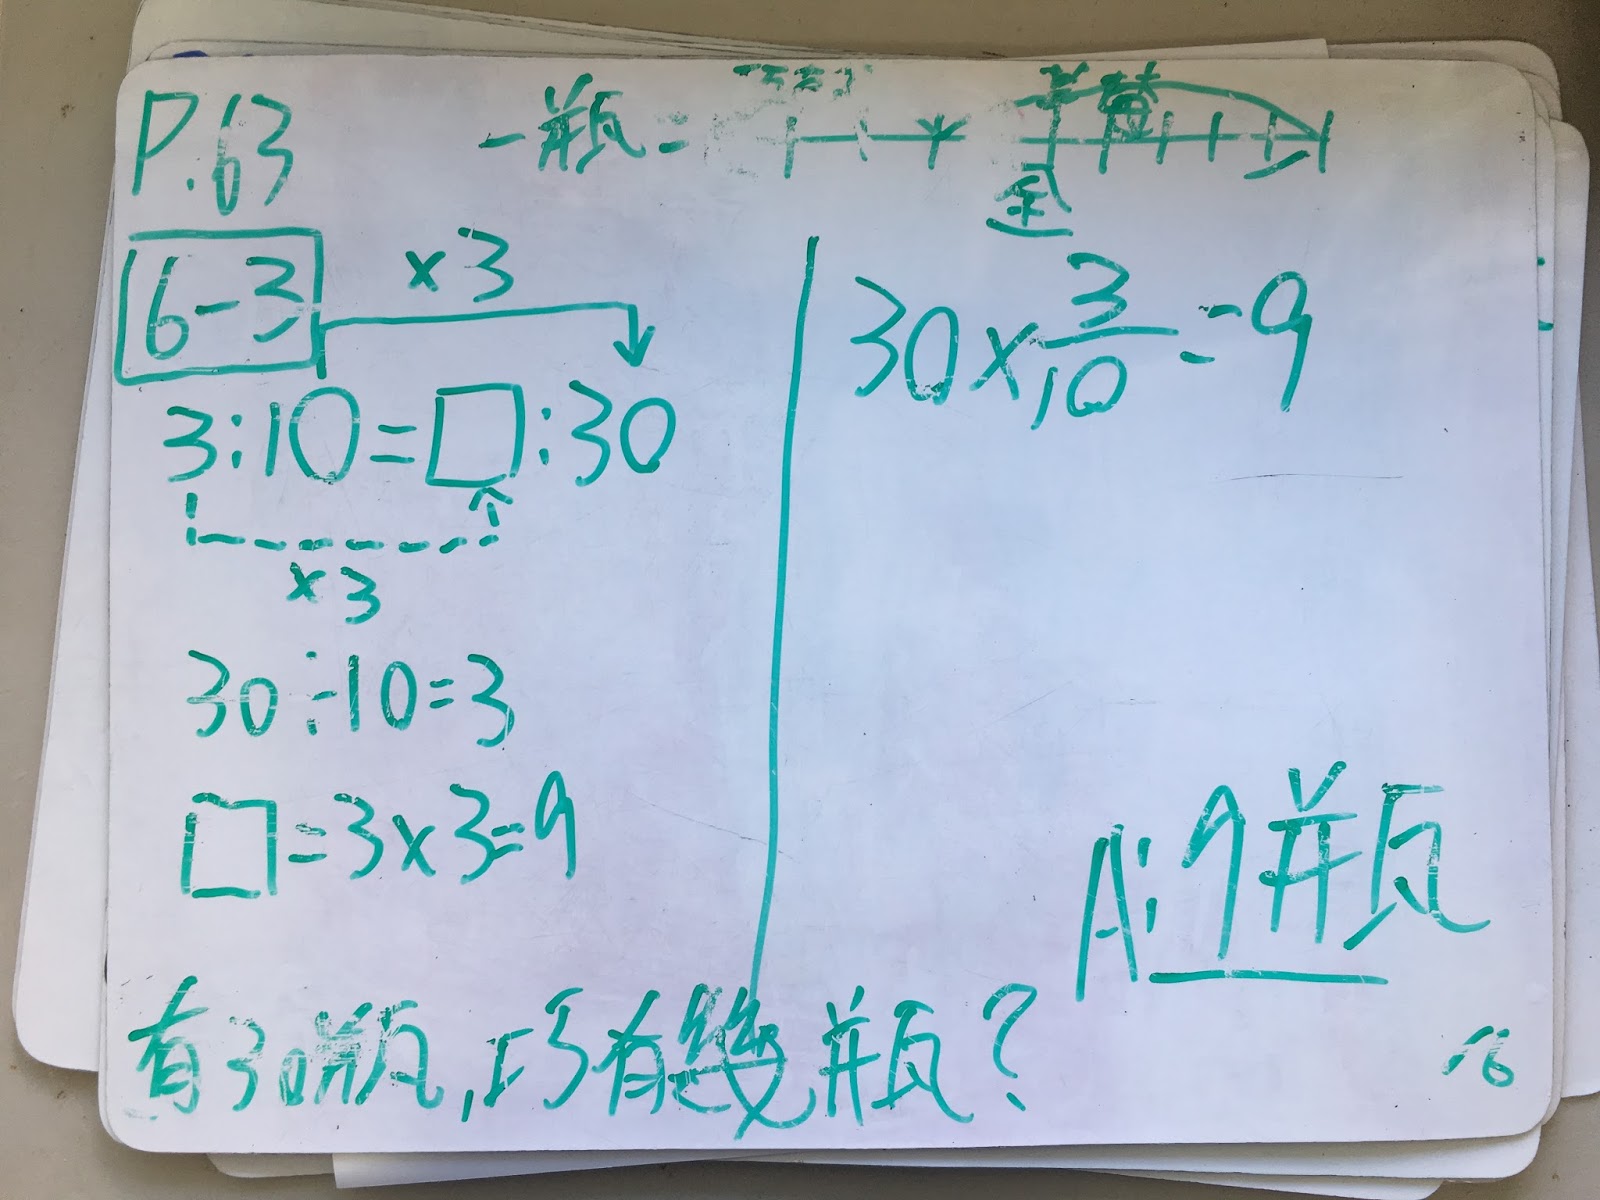 P.63
一瓶=
全
6-3
×3
3:10=□:30
×3
30÷10=3
□=3×3=9
30×3/10=9
A:9瓶
有30瓶,巧有幾瓶?
16